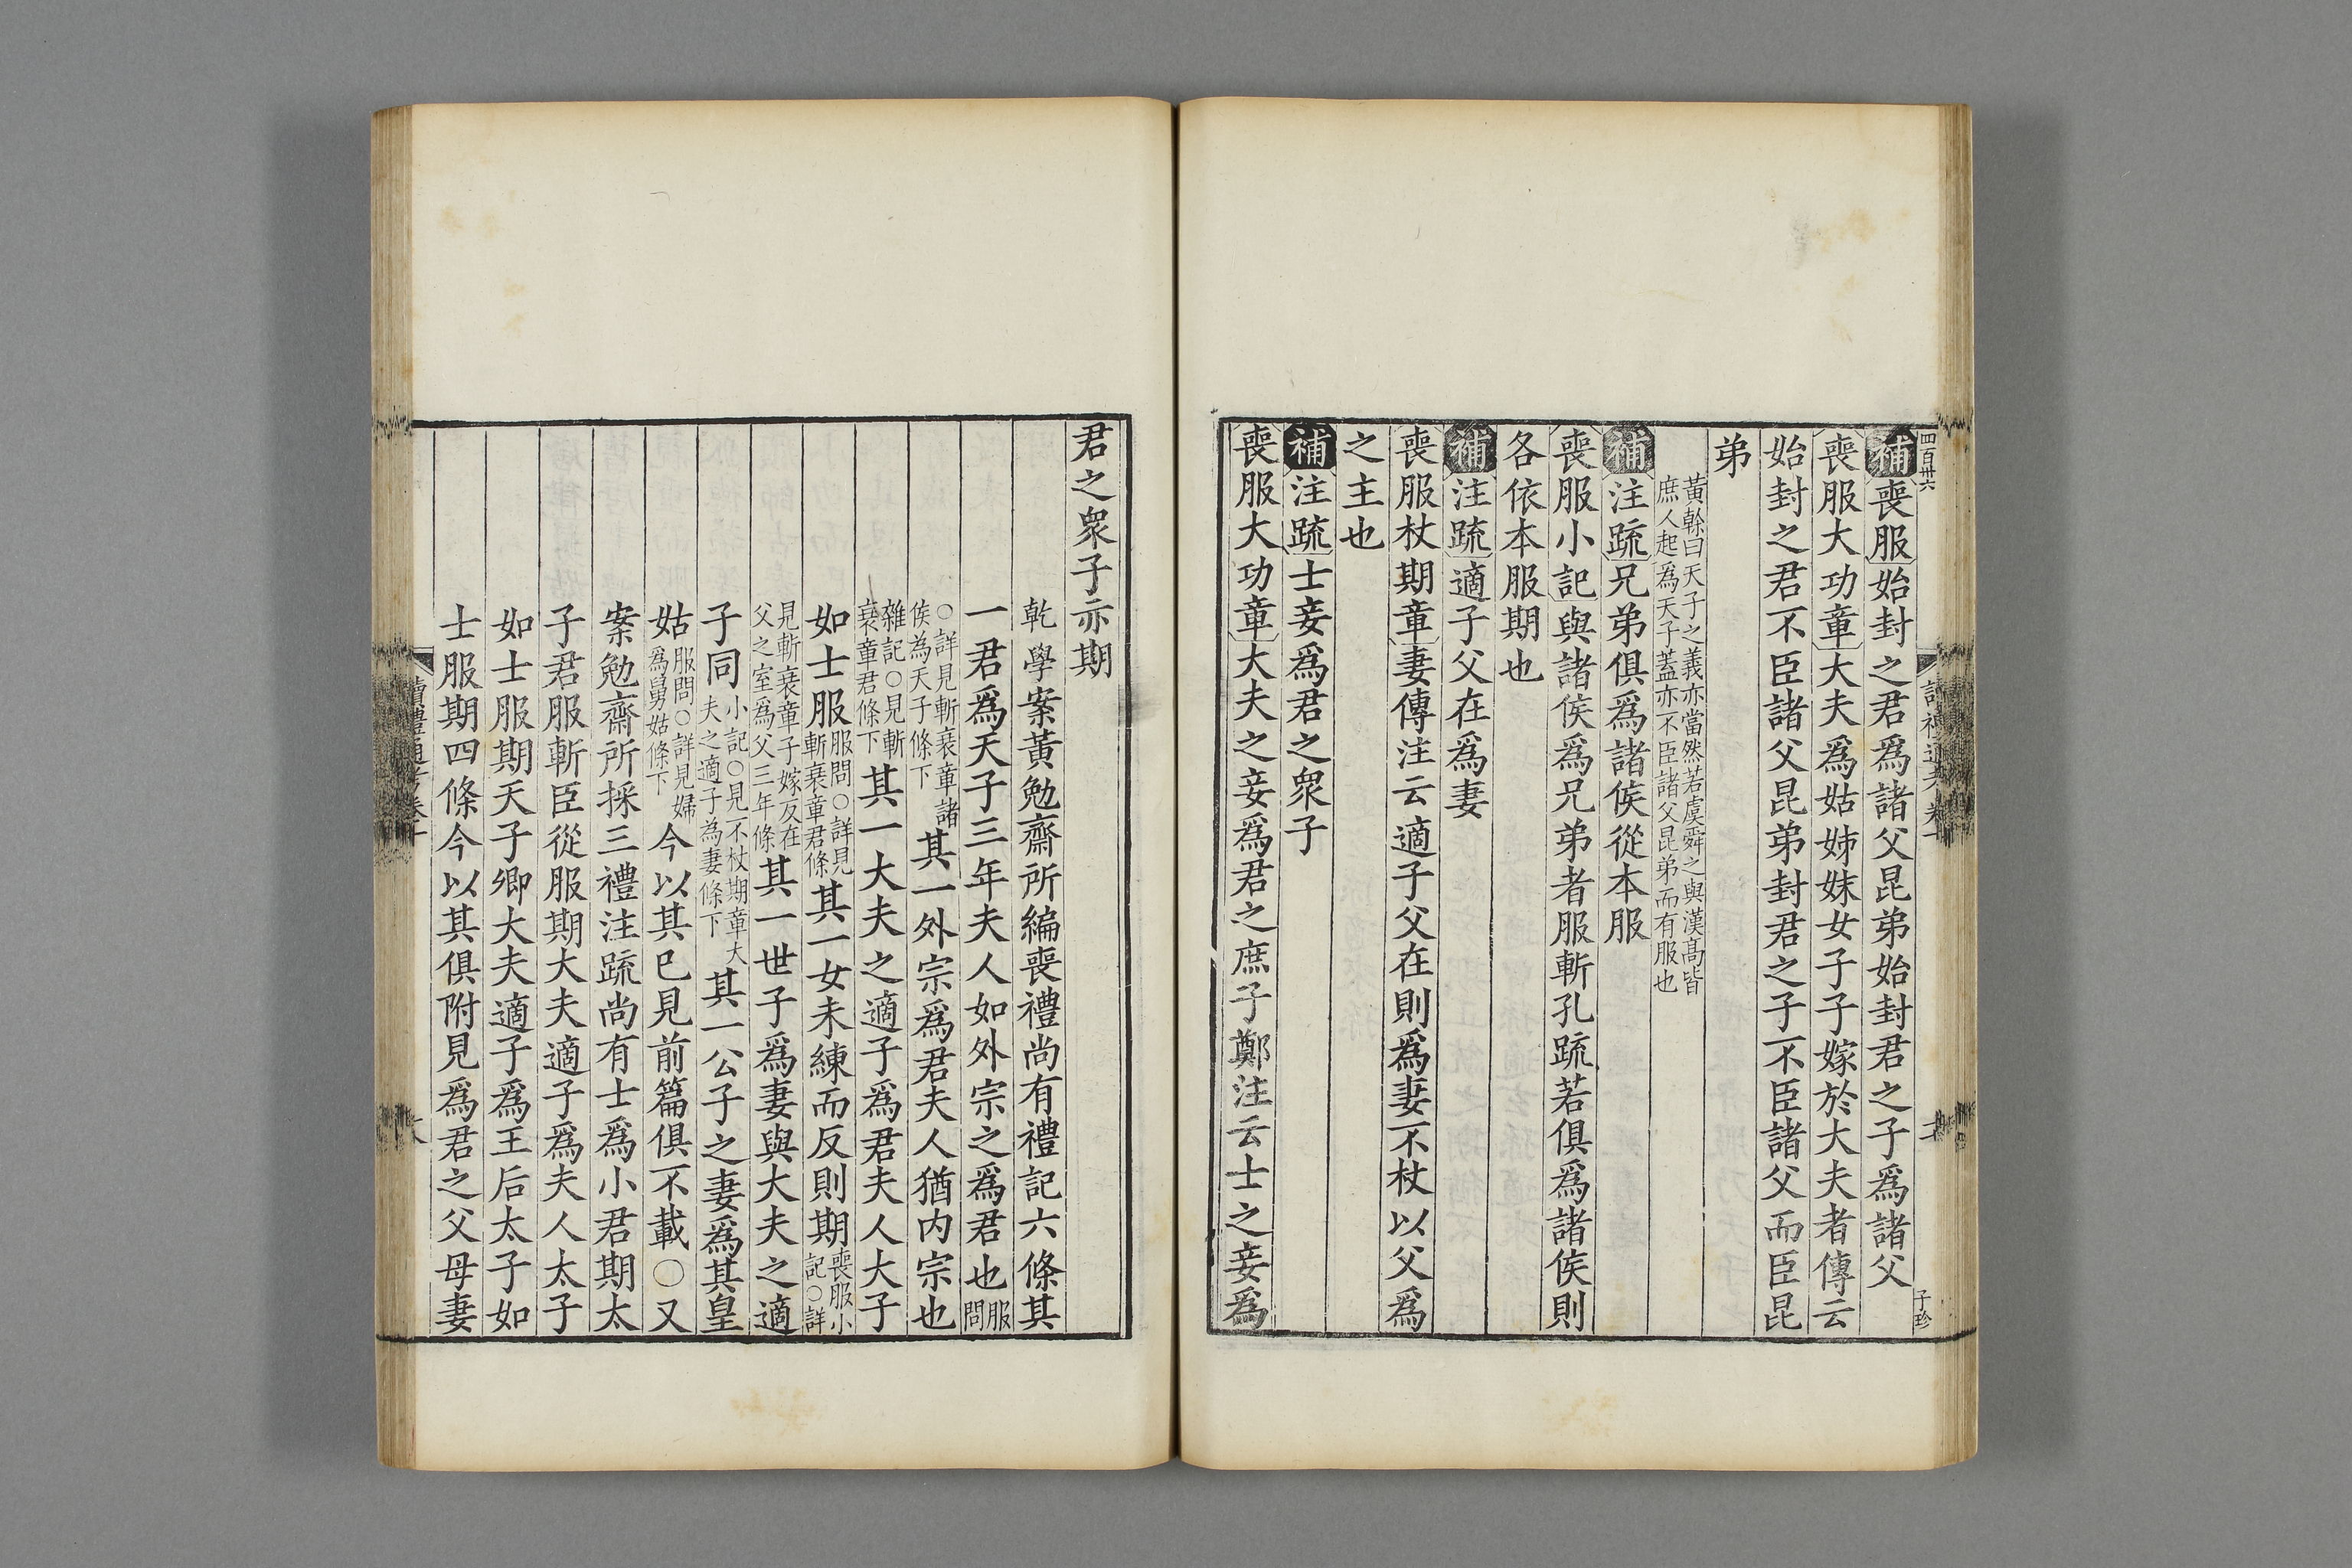 四百卅六
補喪服始封之君爲諸父昆弟始封君之子爲諸父
喪服大功章大夫爲姑姊妹女子子嫁於大夫者傳云
始封之君不臣諸父昆弟封君之子不臣諸父而臣昆
弟
黃榦曰天子之義亦當然若虞舜之與漢髙皆
庶人起為天子蓋亦不臣諸父昆弟而有服也
補注疏兄弟俱爲諸侯從本服
喪服小記與諸侯爲兄弟者服斬孔疏若俱爲諸侯則
各依本服期也
補注疏適子父在爲妻
喪服杖期章妻傳注云適子父在則爲妻不杖以父爲
之主也
補注疏士妾爲君之衆子
喪服大功章大夫之妾爲君之庶子鄭注云士之妾爲
子珍
君之衆子亦期
乾學案黃勉齋所編喪禮尚有禮記六條其
一君爲天子三年夫人如外宗之爲君也服問
○詳見斬衰章諸侯為天子條下其一外宗爲君夫人猶内宗也
雜記○見斬衰章君條下其一大夫之適子爲君夫人大子
如士服服問○詳見斬衰章君條其一女未練而反則期喪服小記○詳
見斬衰章子嫁反在父之室為父三年條其一世子爲妻與大夫之適
子同小記○見不杖期章大夫之適子為妻條下其一公子之妻爲其皇
姑服問○詳見婦為舅姑條下今以其已見前篇俱不載○又
案勉齋所採三禮注疏尚有士爲小君期太
子君服斬臣從服期大夫適子爲夫人太子
如士服期天子卿大夫適子爲王后太子如
士服期四條今以其俱附見爲君之父母妻
讀禮通考卷十